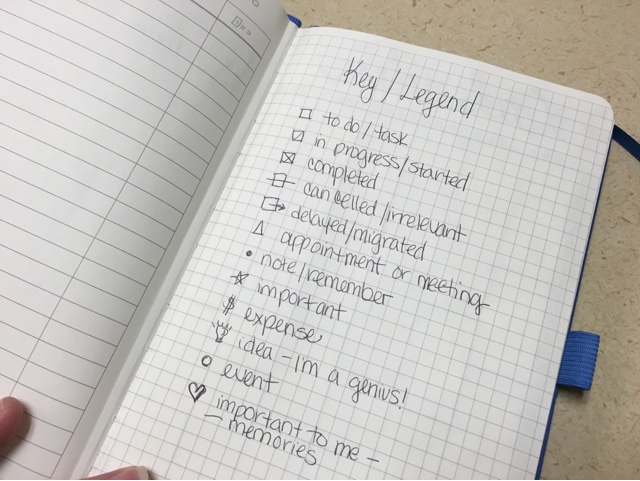 Key / Legend
to do / task
in progress/started
completed
cancelled/irrelevant
delayed/migrated
appointment or meeting
note/remember
important
$ expense
idea - Im a genius!
event
important to me -
- memories